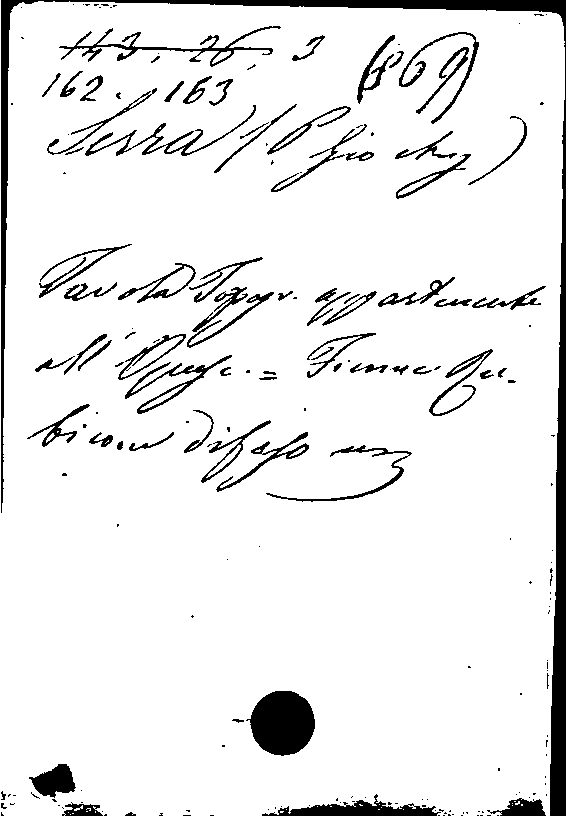 143. 26. 3 (869)
162. 163
Serra (P. Gio
Tavola Topogr. appartenente
all' Opusc. = Fiume Ru-
bicone difeso